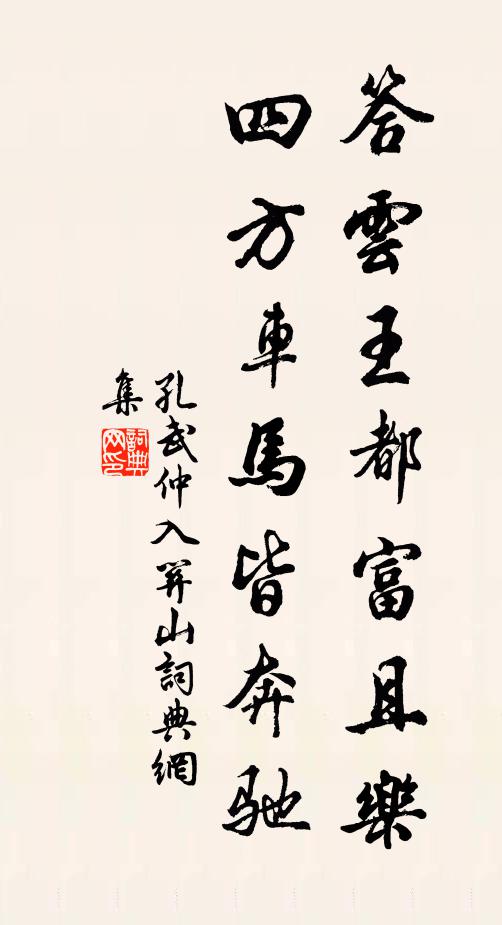 答雲王都富且樂
四方車馬皆奔馳
孔武仲入羿山詞典網
集
詞典
网印